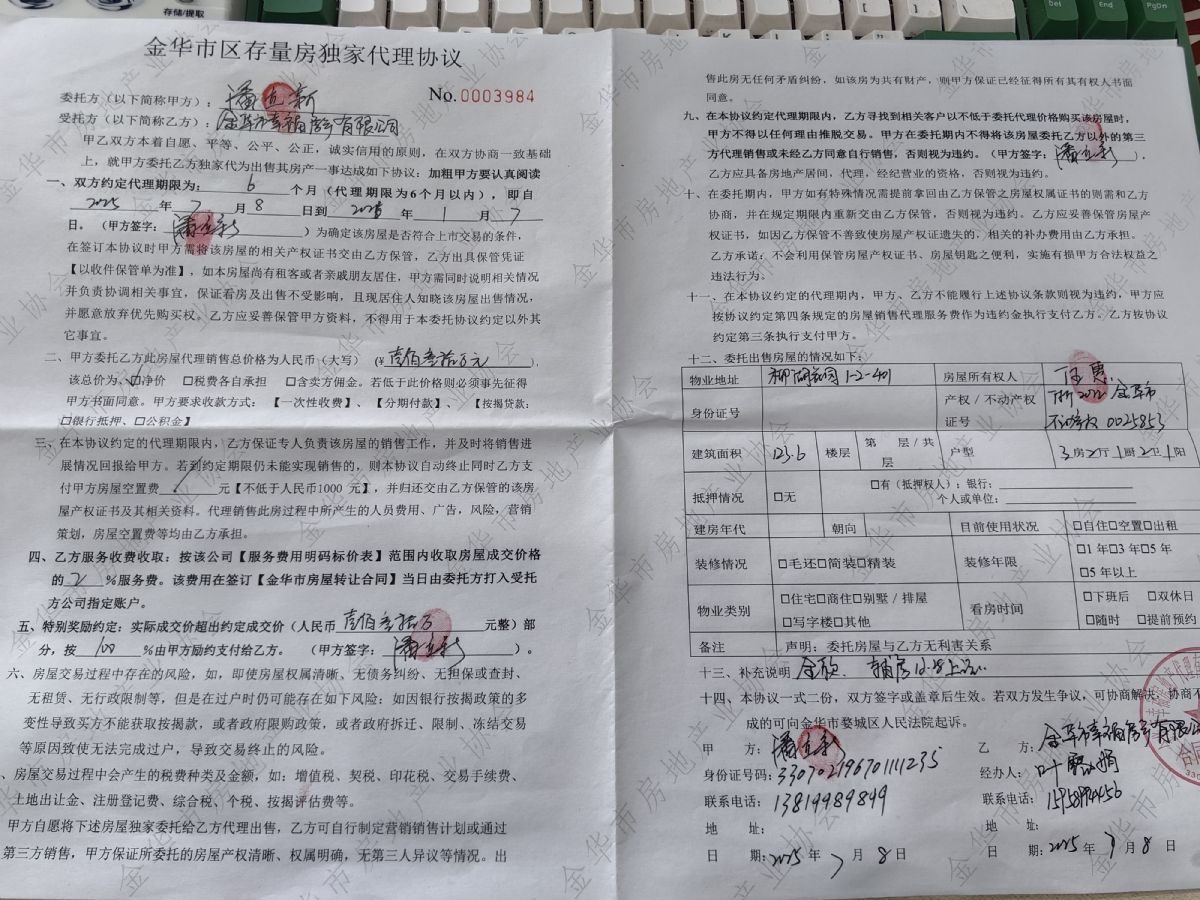 存储/提取
Del
End
PgDn
金华市区存量房独家代理协议
No.0003984
委托方（以下简称甲方）：潘立新
受托方（以下简称乙方）：金华市幸福房产有限公司
甲乙双方本着自愿、平等、公平、公正，诚实信用的原则，在双方协商一致基础
上，就甲方委托乙方独家代为出售其房产一事达成如下协议：加粗甲方要认真阅读
一、双方约定代理期限为：6个月（代理期限为6个月以内），即自
2025年7月8日到2026年1月7
日。（甲方签字：潘立新）为确定该房屋是否符合上市交易的条件，
在签订本协议时甲方需将该房屋的相关产权证书交由乙方保管，乙方出具保管凭证
【以收件保管单为准】，如本房屋尚有租客或者亲戚朋友居住，甲方需同时说明相关情况
并负责协调相关事宜，保证看房及出售不受影响，且现居住人知晓该房屋出售情况，
并愿意放弃优先购买权。乙方应妥善保管甲方资料，不得用于本委托协议约定以外其
它事宜。
二、甲方委托乙方此房屋代理销售总价格为人民币（大写）（¥壹佰叁拾万元），
该总价为、☑净价 □税费各自承担 □含卖方佣金。若低于此价格则必须事先征得
甲方书面同意。甲方要求收款方式：【一次性收费】、【分期付款】、【按揭贷款：
□银行抵押、□公积金】
三、在本协议约定的代理期限内，乙方保证专人负责该房屋的销售工作，并及时将销售进
展情况回报给甲方。若到约定期限仍未能实现销售的，则本协议自动终止同时乙方支
付甲方房屋空置费/元【不低于人民币1000 元】，并归还交由乙方保管的该房
屋产权证书及其相关资料。代理销售此房过程中所产生的人员费用、广告，风险，营销
策划，房屋空置费等均由乙方承担。
四、乙方服务收费收取：按该公司【服务费用明码标价表】范围内收取房屋成交价格
的2%服务费。该费用在签订【金华市房屋转让合同】当日由委托方打入受托
方公司指定账户。
五、特别奖励约定：实际成交价超出约定成交价（人民币壹佰叁拾万元整）部
分，按100%由甲方励约支付给乙方。（甲方签字：潘立新）。
六、房屋交易过程中存在的风险，如，即使房屋权属清晰、无债务纠纷、无担保或查封、
无租赁、无行政限制等，但是在过户时仍可能存在如下风险：如因银行按揭政策的多
变性导致买方不能获取按揭款，或者政府限购政策，或者政府拆迁、限制、冻结交易
等原因致使无法完成过户，导致交易终止的风险。
、房屋交易过程中会产生的税费种类及金额，如：增值税、契税、印花税、交易手续费、
土地出让金、注册登记费、综合税、个税、按揭评估费等。
甲方自愿将下述房屋独家委托给乙方代理出售，乙方可自行制定营销销售计划或通过
第三方销售，甲方保证所委托的房屋产权清晰、权属明确，无第三人异议等情况。出
售此房无任何矛盾纠纷，如该房为共有财产，则甲方保证已经征得所有其有权人书面
同意。
九、在本协议约定代理期限内，乙方寻找到相关客户以不低于委托代理价格购买该房屋时，
甲方不得以任何理由推脱交易。甲方在委托期内不得将该房屋委托乙方以外的第三
方代理销售或未经乙方同意自行销售，否则视为违约。（甲方签字：潘立新），
乙方应具备房地产居间，代理，经纪营业的资格，否则视为违约。
十、在委托期内，甲方如有特殊情况需提前拿回由乙方保管之房屋权属证书的则需和乙方
协商，并在规定期限内重新交由乙方保管，否则视为违约。乙方应妥善保管房屋产
权证书，如因乙方保管不善致使房屋产权证遗失的，相关的补办费用由乙方承担。
乙方承诺：不会利用保管房屋产权证书、房屋钥匙之便利，实施有损甲方合法权益之
违法行为。
十一、在本协议约定的代理期内，甲方、乙方不能履行上述协议条款则视为违约，甲方应
按协议约定第四条规定的房屋销售代理服务费作为违约金执行支付乙方。乙方按协议
约定第三条执行支付甲方。
十二、委托出售房屋的情况如下：
物业地址 柳湖花园1-2-401 房屋所有权人
身份证号 产权／不动产权证号 2022 金华市不动产权0025853
建筑面积 123.6 楼层 第 层／共 层 户型 3房2厅1厨2卫1阳
抵押情况 □无 □有（抵押权人）：银行：
个人或单位：
建房年代 朝向 目前使用状况 □自住□空置□出租
装修情况 □毛还□简装□精装 装修年限 □1年□3年□5年
□5年以上
物业类别 □住宅□商住□别墅／排屋 看房时间 □下班后 □双休日
□写字楼□其他 □随时 □提前预约
备注 声明：委托房屋与乙方无利害关系
十三、补充说明
十四、本协议一式二份，双方签字或盖章后生效。若双方发生争议，可协商解决，协商不
成的可向金华市婺城区人民法院起诉。
甲 方：潘立新
身份证号码：330702196701111235
联系电话：13819989899
地 址：
日 期：2025年7月8日
乙 方：金华市幸福房产有限公
经办人：叶
联系电话：
地 址：
日 期：2025年7月8日
金华市房地产业协会